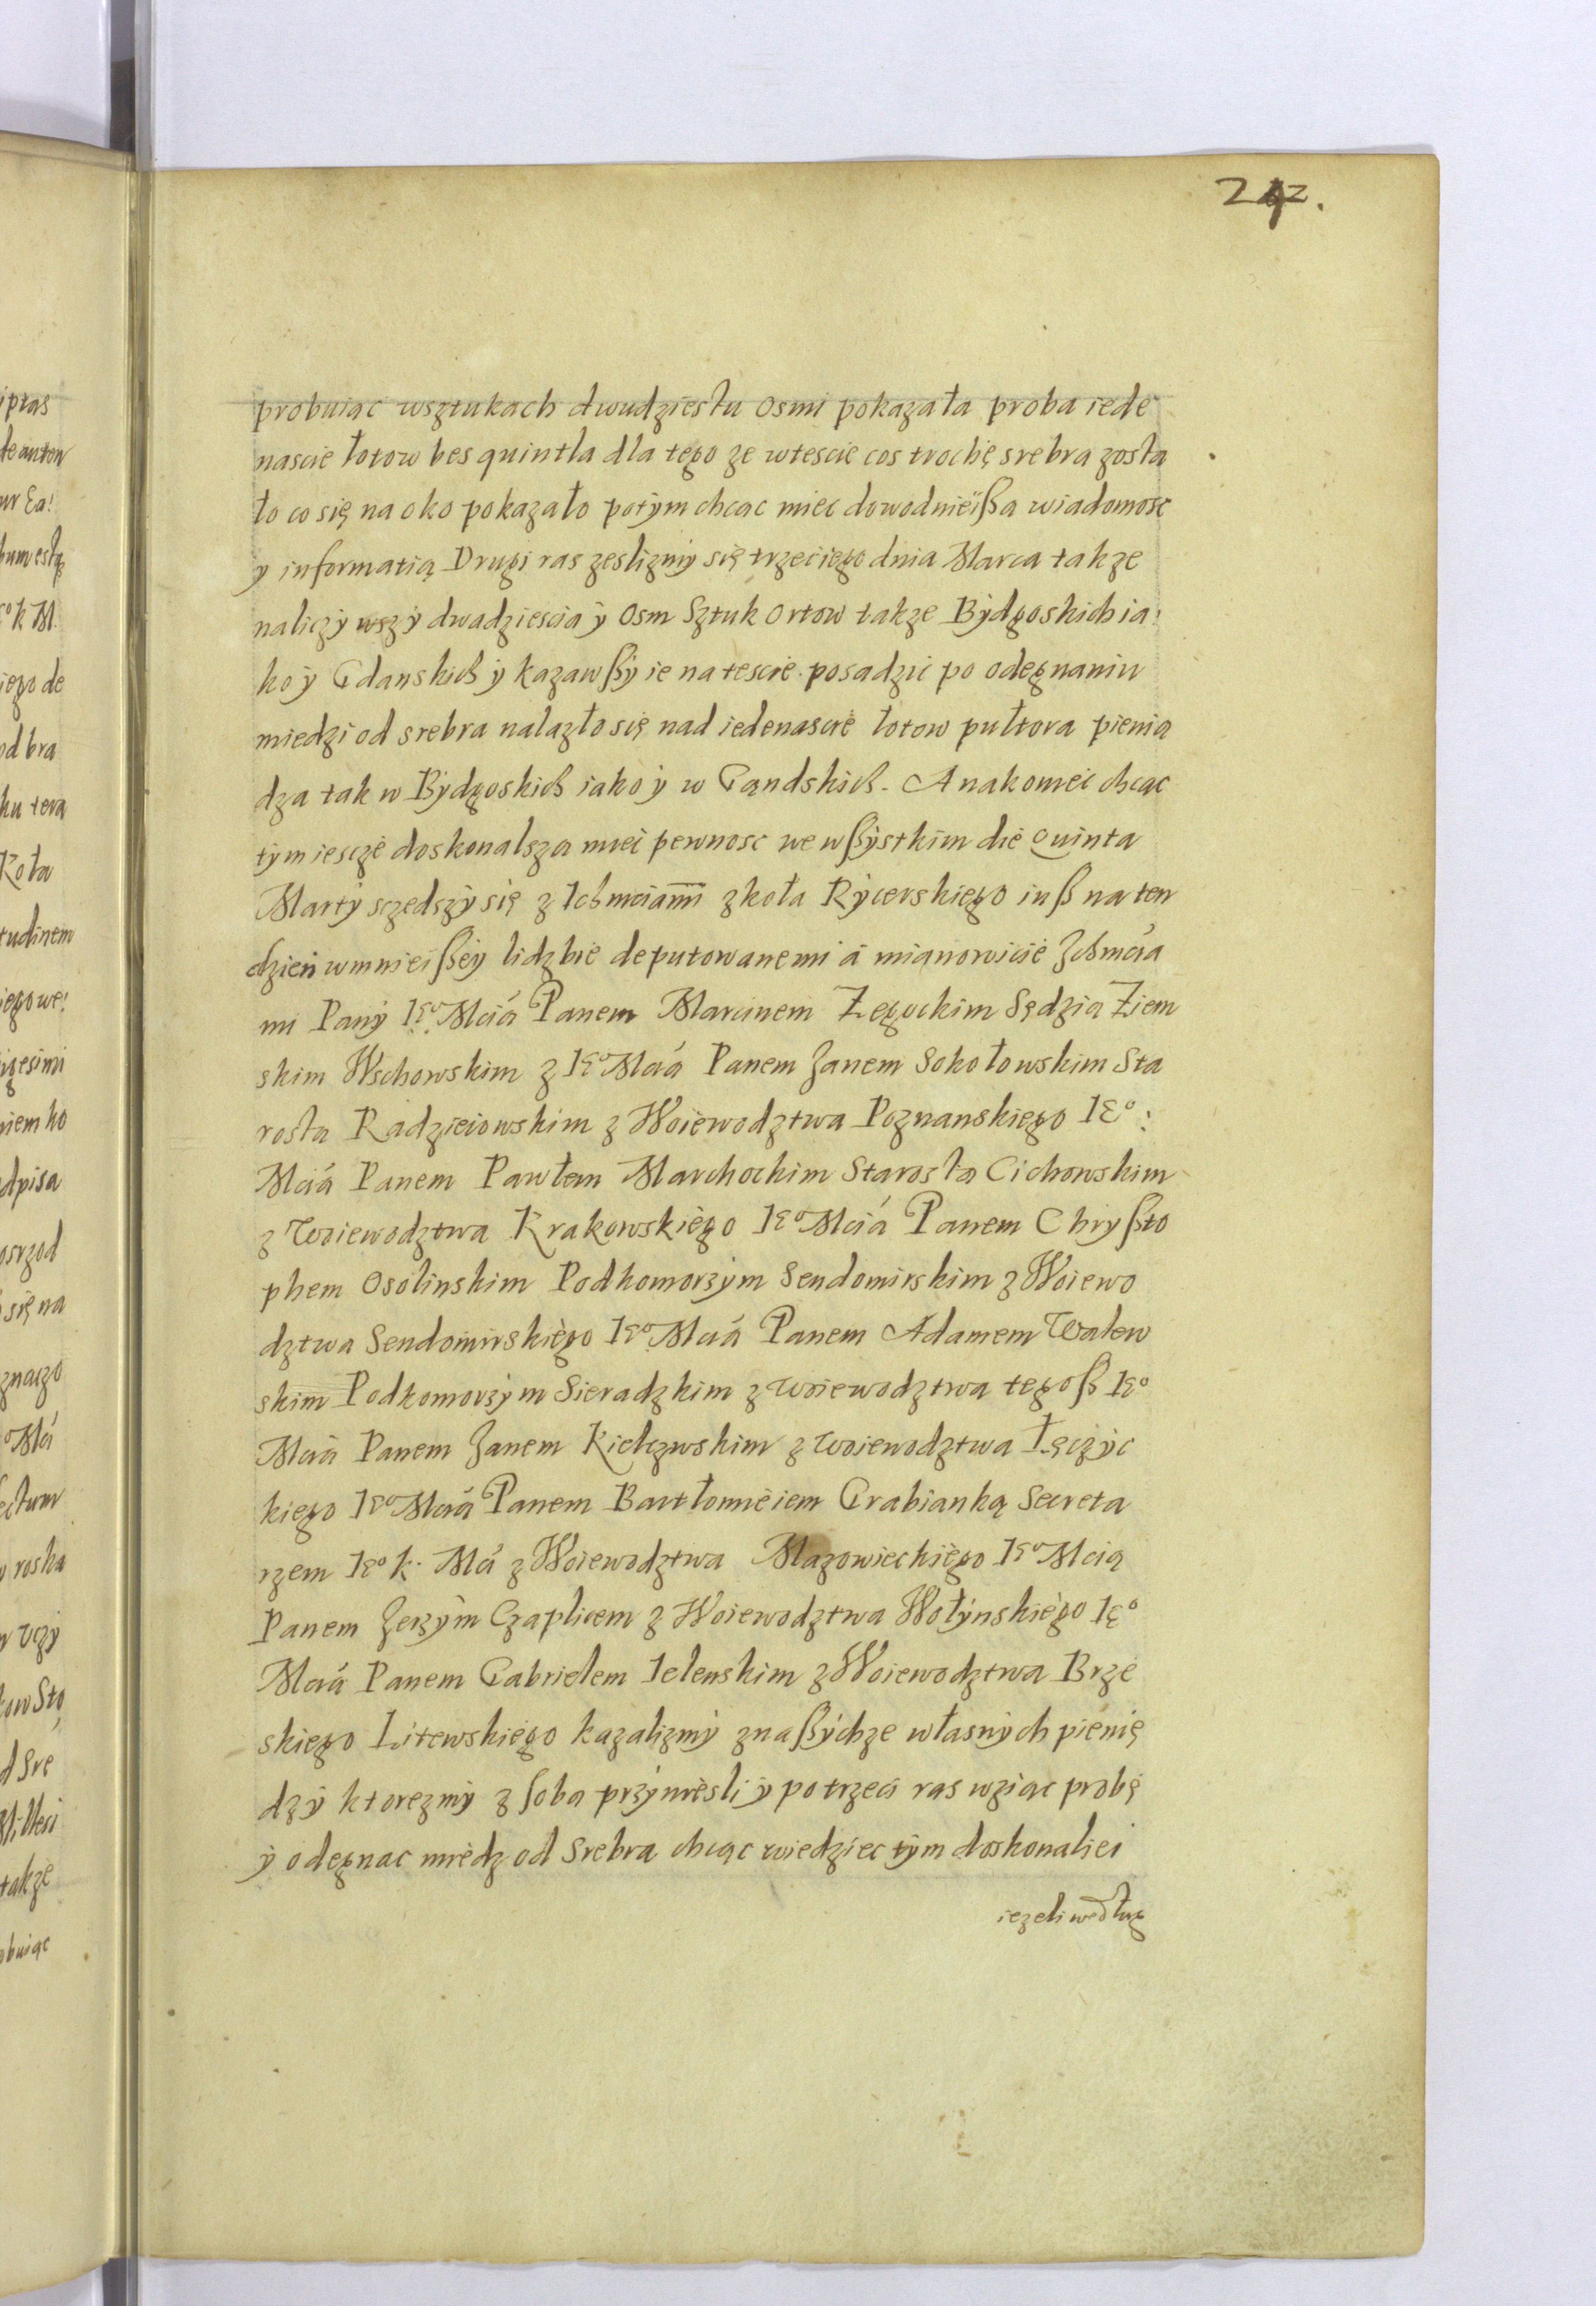 292.
probuiąc wsztukach dwudziestu osmi pokazała proba iede
nascie łotow bes quintla dla tego ze wtescie cos trochę srebra zosta
ło co się na oko pokazało potym chcąc miec dowodnieißa wiadomosc
y informatią Drugi ras zeslizmy się trzeciego dnia Marca takze
naliczywszy dwadziescia y osm Sztuk ortow takze Bydgoskich ia:
ko y Gdanskich y kazawßy ie na tescie posadzic po odegnaniu
miedzi od srebra nalazło się nad iedenascie łotow pułtora pienią
dza tak w Bydgoskich iako y w Gandskich. A nakoniec chcąc
tym iescze doskonalsza miec pewnosc we wßystkim die Quinta
Marty sczedszy się z Ichmciami zkoła Rycerskiego iuß na ten
dzień wmnieißey lidzbie deputowanemi á mianowicie Jchmcia
mi Pany Ieº Mcią Panem Marcinem Zegockim Sędzią Ziem
skim Wschowskim z Ieº Mcią Panem Janem Sokołowskim Sta
rosta Radzieiowskim z Woiewodztwa Poznanskiego Ieº:
Mcią Panem Pawłem Marchockim Starosta Cichowskim
z Woiewodztwa Krakowskiego Ieº Mcią Panem Chryßto
phem Osolinskim Podkomorzym Sendomirskim z Woiewo
dztwa Sendomirskiego Ieº Mcią Panem Adamem Walew
skim Podkomorzym Sieradzkim z Woiewodztwa tegoß Ieº
Mcią Panem Janem Kielczwskim z Woiewodztwa Łęczyc
kiego Ieº Mcią Panem Bartłomieiem Grabianką Secreta
rzem Ieº k. Mci z Woiewodztwa Mazowieckiego Ieº Mcią
Panem Jerzym Czaplicem z Woiewodztwa Wołynskiego Ieº
Mcią Panem Gabrielem Ielenskim z Woiewodztwa Brze
skiego Litewskiego kazalizmy znaßychze własnych pienię
dzy ktorezmy z soba przyniesli y po trzeci ras wziąc probę
y odegnac miedz od Srebra chcąc wiedziec tym doskonaliei
iezeli według